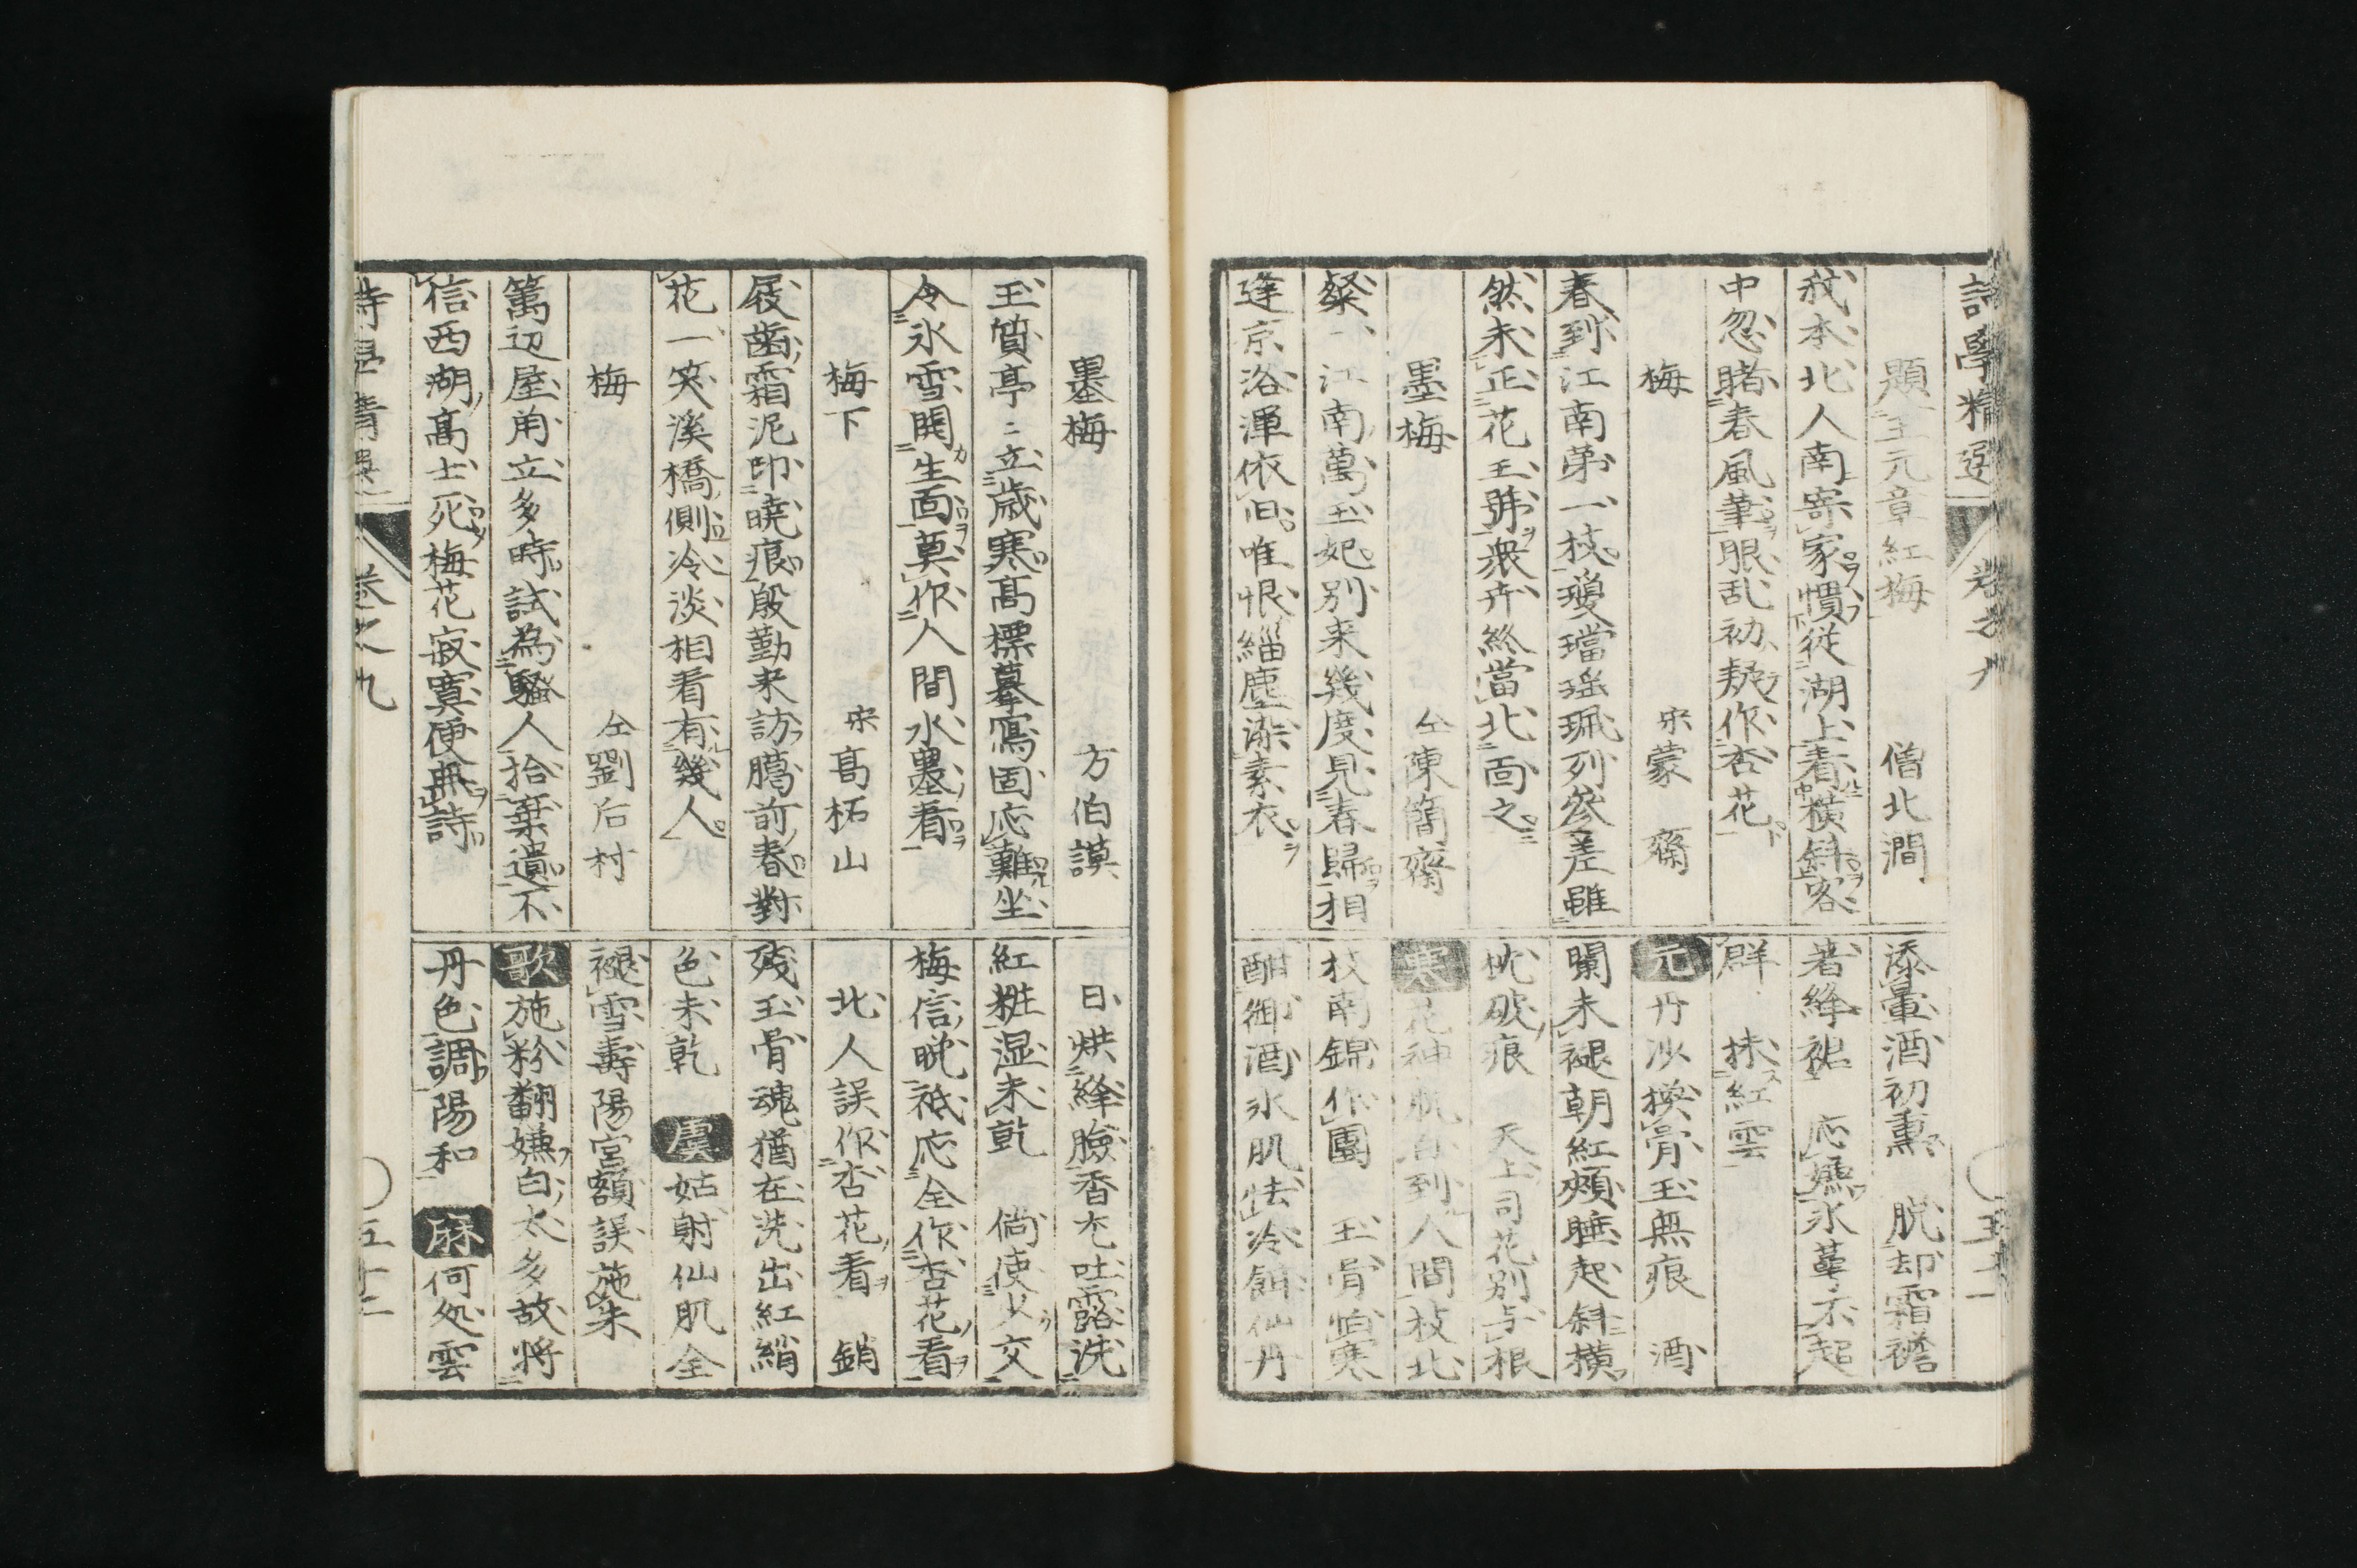 詩學精選　卷之九
題王元章紅梅　僧北澗
我本北人南寄家慣従湖上看横斜客
中忽睹春風筆眼乱初疑作杏花
梅　宋蒙齋
春到江南第一枝瓊璫瑶珮列參差雖
然未正花王号衆卉終當北面之
墨梅　仝陳簡齋
粲〻江南萬玉妃別来幾度見春歸相
逢京洛渾依旧唯恨緇塵染素衣
添暈酒初熏　脱却霜襜
著絳裙　応嬌氷萼不超
群　抹紅雲
元　丹沙換骨玉無痕　酒
闌未褪朝紅頰睡起斜横
枕破痕　天上司花別与根
寒　花神飛自到人間枝北
枝南錦作團　玉骨怕寒
酣御酒氷肌怯冷餌仙丹
墨梅　方伯謨
玉質亭〻立歳寒高標摹寫固応難坐
令氷雪開生面莫作人間水墨看
梅下　宋高栢山
屐齒霜泥印曉痕殷勤来訪臈前春對
花一笑溪橋側冷淡相看有幾人
梅　仝劉后村
篱辺屋角立多時試為騷人拾棄遺不
信西湖高士死梅花寂寞便無詩
日烘絳臉香丕吐露洗
紅粧湿未乾　倘使乂交
梅信晩祇応全作杏花看
北人誤作杏花看　銷
残玉骨魂猶在洗出紅綃
色未乾　虞　姑射仙肌全
褪雪壽陽宮額誤施朱
歌　施粉翻嫌白太多故将
丹色調陽和　麻　何処雲
詩學精選　卷之九　五十二